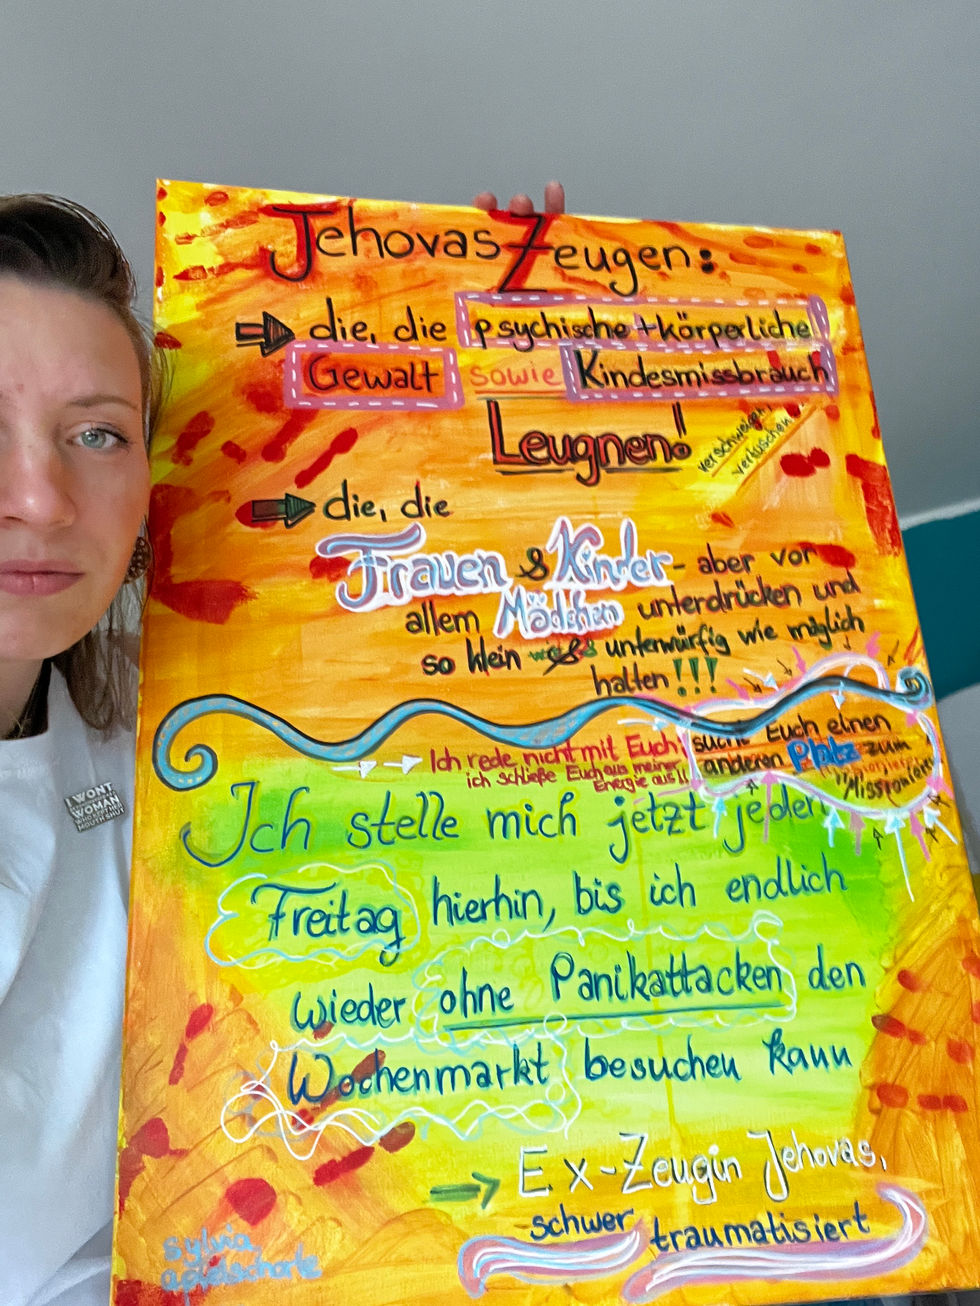 Jehovas Zeugen:
die, die psychische + körperliche
Gewalt sowie Kindesmissbrauch
Leugnen!
verschweigen
vertuschen
die, die
Frauen & Kinder - aber vor
allem Mädchen unterdrücken und
so klein & unterwürfig wie möglich
halten!!!
Ich rede nicht mit Euch,
ich schließe Euch aus meiner
Energie aus!!
sucht Euch einen
anderen Platz zum
"Missionieren"
Ich stelle mich jetzt jeden
Freitag hierhin, bis ich endlich
wieder ohne Panikattacken den
Wochenmarkt besuchen kann
Ex-Zeugin Jehovas,
schwer traumatisiert
sylvia
I WONT
WOMAN
MOUTH SHUT